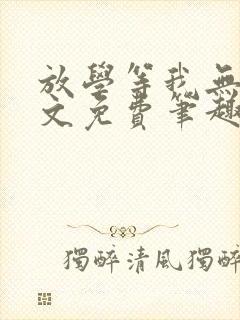 放學等我無
文免費筆趣
獨醉清風獨醉